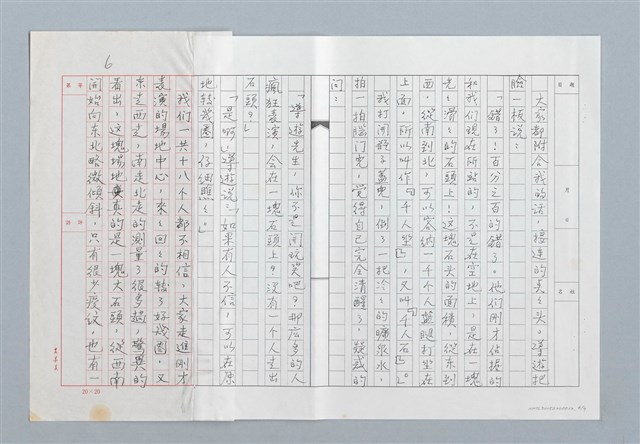 大家都附合我的話，接連的點點頭。導遊把
臉一板說：
「錯了！百分之百的錯了。他們剛才住扳的
和我們現在所站的，不是在空地上，是在一塊
光滑滑的石頭上！這塊石頭的面積，從東到
西，從南到北，可以容納一千個人盤腿打坐在
上面，所以叫作『千人坐』，又叫『千人石』。」
我打開瓶子蓋兒，倒了一把冷冷的礦泉水，
拍一拍腦門兒，覺得自己完全清醒了，疑惑的
問：
「導遊先生，你不是開玩笑吧？那麼多的人
瘋狂表演，會在一塊石頭上？沒有一個人走出
石頭？」
「是啊，」導遊說：「如果有人不信，可以在原
地轉幾圈，仔細瞧瞧。」
我們一共十八個人都不相信，大家走進剛才
表演的場地中心，來來回回的轉了好幾圈，又
東走西走，南走北走的測量了很多趟，驚異的
看出，這塊場地真的是一塊大石頭，從西南
開始向東北略微傾斜，只有很少裂紋，也有一
6
20×20